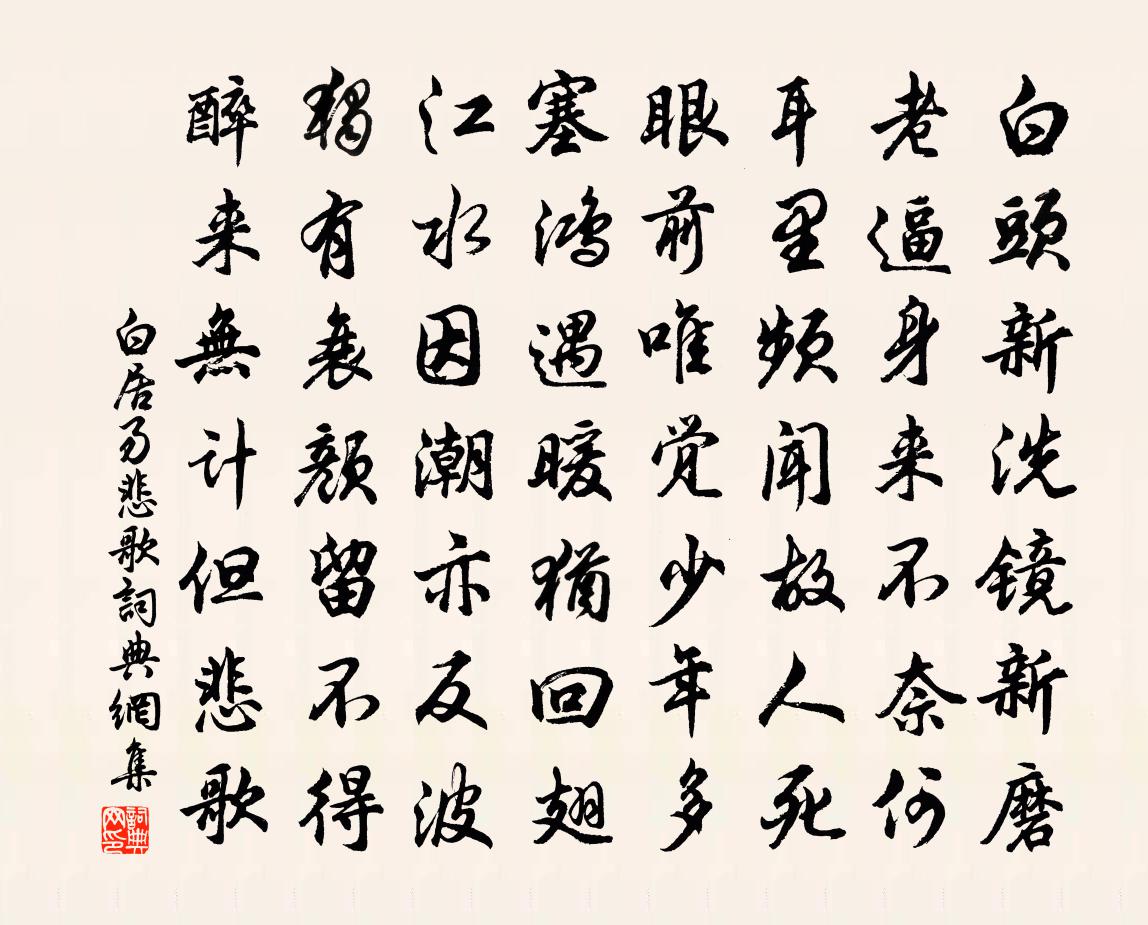 白頭新洗镜新磨
老逼身来不奈何
耳里频闻故人死
眼前唯觉少年多
塞鸿遇暖犹回翅
江水因潮亦反波
独有衰颜留不得
醉来無计但悲歌
白居易悲歌詞典網集
詞典网印